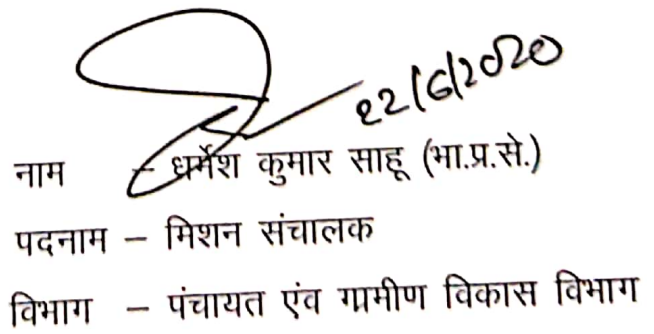 22/6/2020
नाम – धर्मेश कुमार साहू (भा.प्र.से.)
पदनाम – मिशन संचालक
विभाग – पंचायत एंव ग्रामीण विकास विभाग